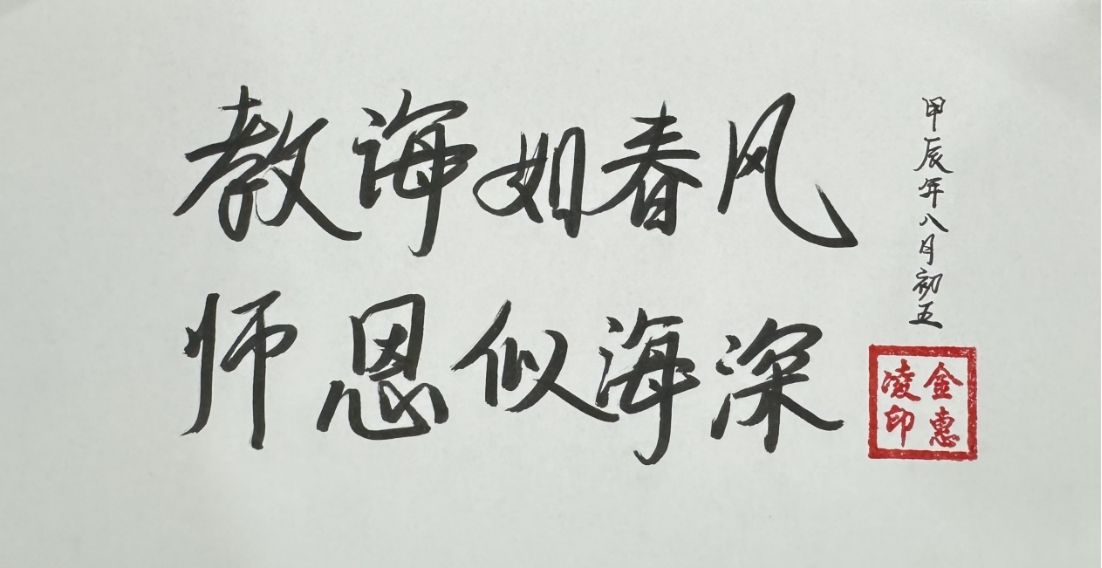 教诲如春风
师恩似海深
甲辰年八月初五
金惠
凌印